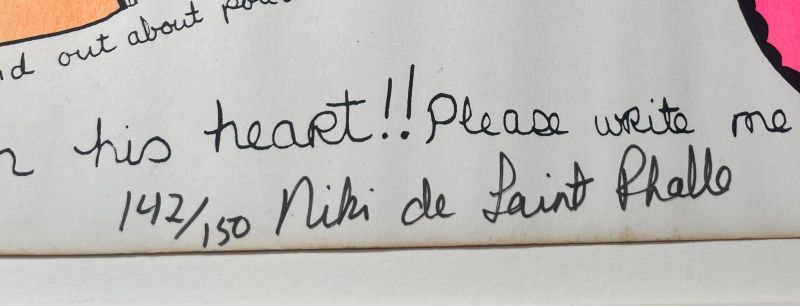 out about
his heart!! Please write me
142/150 Niki de Saint Phalle